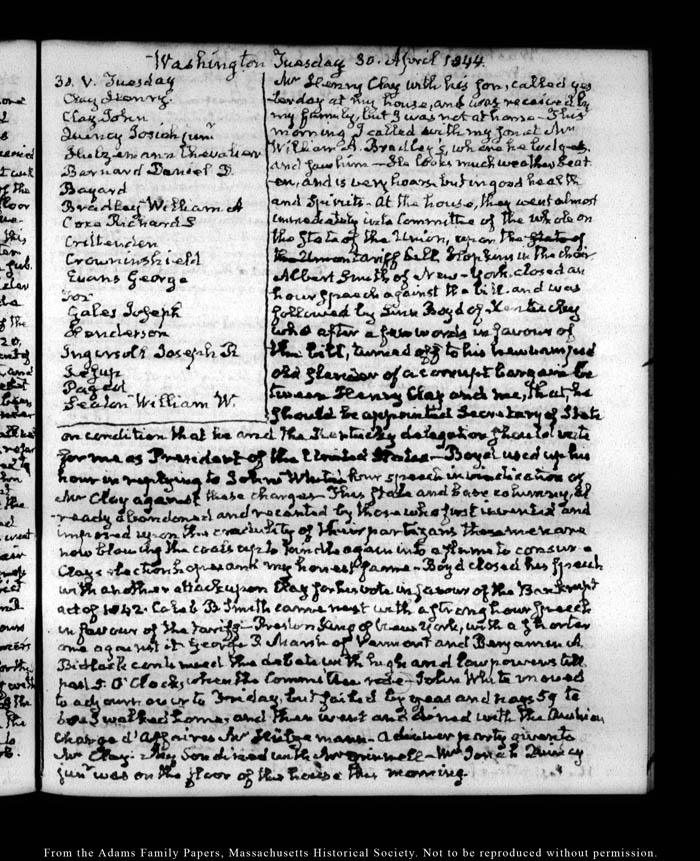 Washington Tuesday 30. April 1844.
30. V. Tuesday
Clay Henry.
Clay John
Quincy Josiah junr
Hulzemann Chevalier
Barnard Daniel D.
Bayard
Bradley William A
Coxe Richard S
Crittenden
Crowninshield
Evans George
Fox
Gales Joseph
Henderson
Ingersoll Joseph R
Jessup
Pageot
Seaton William W.
Mr Henry Clay with his son, called yes
terday at my house, and was received by
my family, but I was not at home - This
morning I called with my son at Mr
William A. Bradley's, where he lodges,
and saw him - He looks much weather beat
en, and is very hoarse but in good health
and Spirits - At the house, they went almost
immediately into Committee of the whole on
the State of the Union, upon the State of
the Union tariff bill Hopkins in the chair
Albert Smith of New-York, closed an
hour speech against the bill and was
followed by Linn Boyd of Kentuckey
who after a few words in favour of
the bill, turned off to his new vamped
old slander of a corrupt bargain be
tween Henry Clay and me, that, he
should be appointed Secretary of State
on condition that he and the Kentucky delegation should vote
for me as President of the United States - Boyd used up his
hour in replying to John White's hour speech in vindication of
Mr Clay against these charges - This stale and base calumny, al
ready abandoned and recanted by those who first invented and
imposed upon the credulity of their partizans these men are
now blowing the coals up to kindle again into a flame to consume
Clay's election hopes and my honest fame - Boyd closed his speech
with another attack upon Clay for his vote in favour of the Bankrupt
act of 1842. Caleb B. Smith came next with a strong hour speech
in favour of the tariff - Preston King of New York, with a shorter
one against it George P. Marsh of Vermont and Benjamin A.
Bidlack continued the debate with high and low powers till
past 5. O'Clock, when the Committee rose - John White moved
to adjourn over to Friday, but failed by yeas and nays 59 to
I walked home, and then went and dined with the Austrian
Chargé d'Affaires Mr Hulzemann - A dinner party given to
Mr Clay. My Son dined with Mr Grinnell - Mr Josiah Quincy
junr was on the floor of the house this morning.
From the Adams Family Papers, Massachusetts Historical Society. Not to be reproduced without permission.